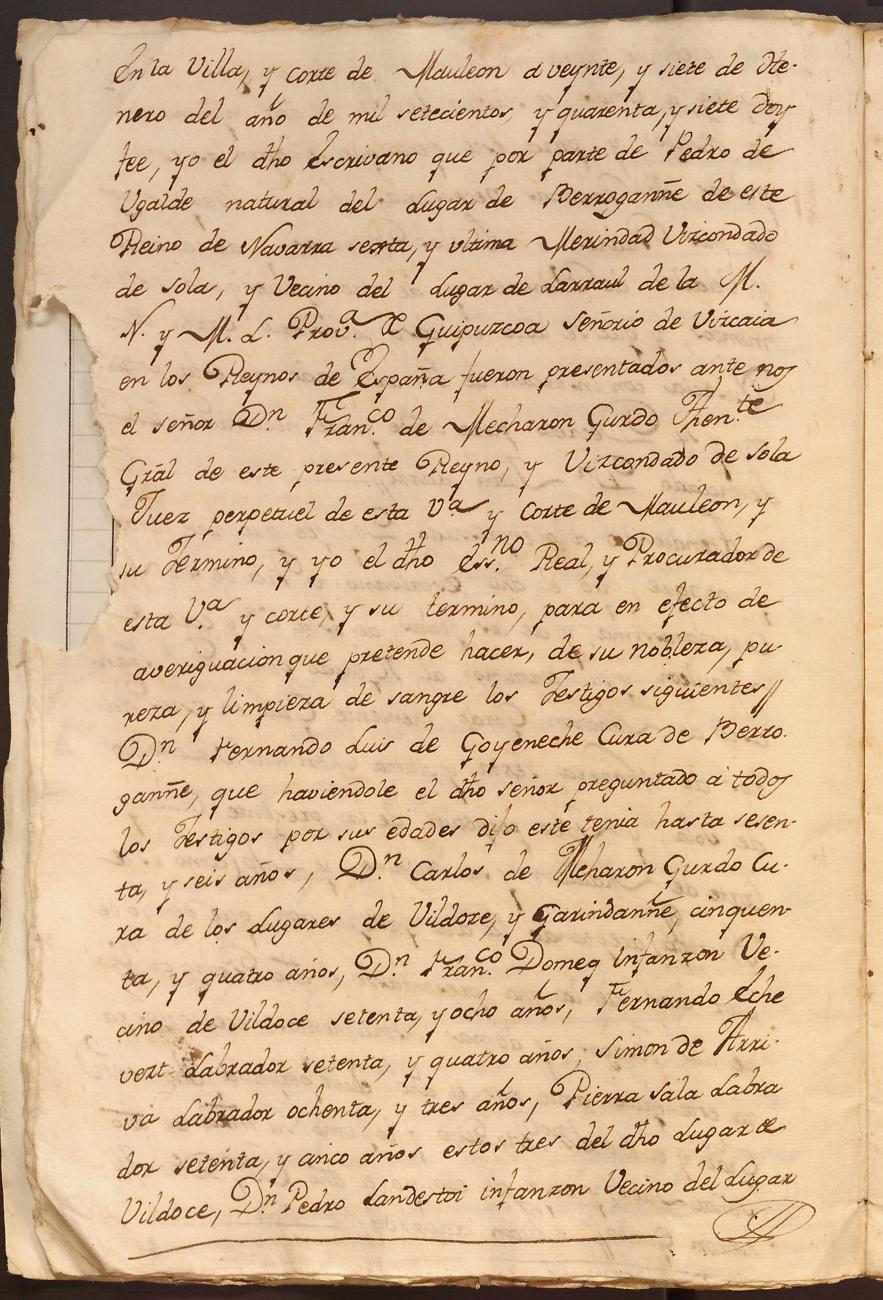 En la Villa, y Corte de Mauleon a veynte, y siete de He-
nero del año de mil setecientos, y quarenta, y siete doy
fee, yo el dho Escrivano que por parte de Pedro de
Ugalde natural del Lugar de Berroganñe de este
Reino de Navarra sexta, y ultima Merindad Vizcondado
de Sola, y Vecino del Lugar de Larraul de la M.
N. y M. L. Prov.ª de Guipuzcoa Señorio de Vizcaia
en los Reynos de España fueron presentados ante nos
el señor Dn Fran.co de Mecharon Gurdo Then.te
Gral de este presente Reyno, y Vizcondado de Sola
Juez perpetuel de esta V.ª y Corte de Mauleon, y
su Termino, y yo el dho Ess.no Real, y Procurador de
esta V.ª y corte, y su termino, para en efecto de
averiguacion que pretende hacer, de su nobleza, pu-
reza, y limpieza de sangre los Testigos siguientes//
Dn Fernando Luis de Goyeneche Cura de Berro-
ganñe, que haviendole el dho señor preguntado a todos
los Testigos por sus edades dijo este tenia hasta sesen-
ta, y seis años, D.n Carlos de Meharon Gurdo Cu-
ra de los Lugares de Vildoze, y Garindanñe, cinquen-
ta, y quatro años, D.n Fran.co Domeq Infanzon Ve-
cino de Vildoce setenta, y ocho años, Fernando Eche
vert Labrador setenta, y quatro años, Simon de Arri-
va Labrador ochenta, y tres años, Pierra Sala Labra
dor setenta, y cinco años estos tres del dho Lugar de
Vildoce, Dn Pedro Landestoi infanzon Vecino del Lugar